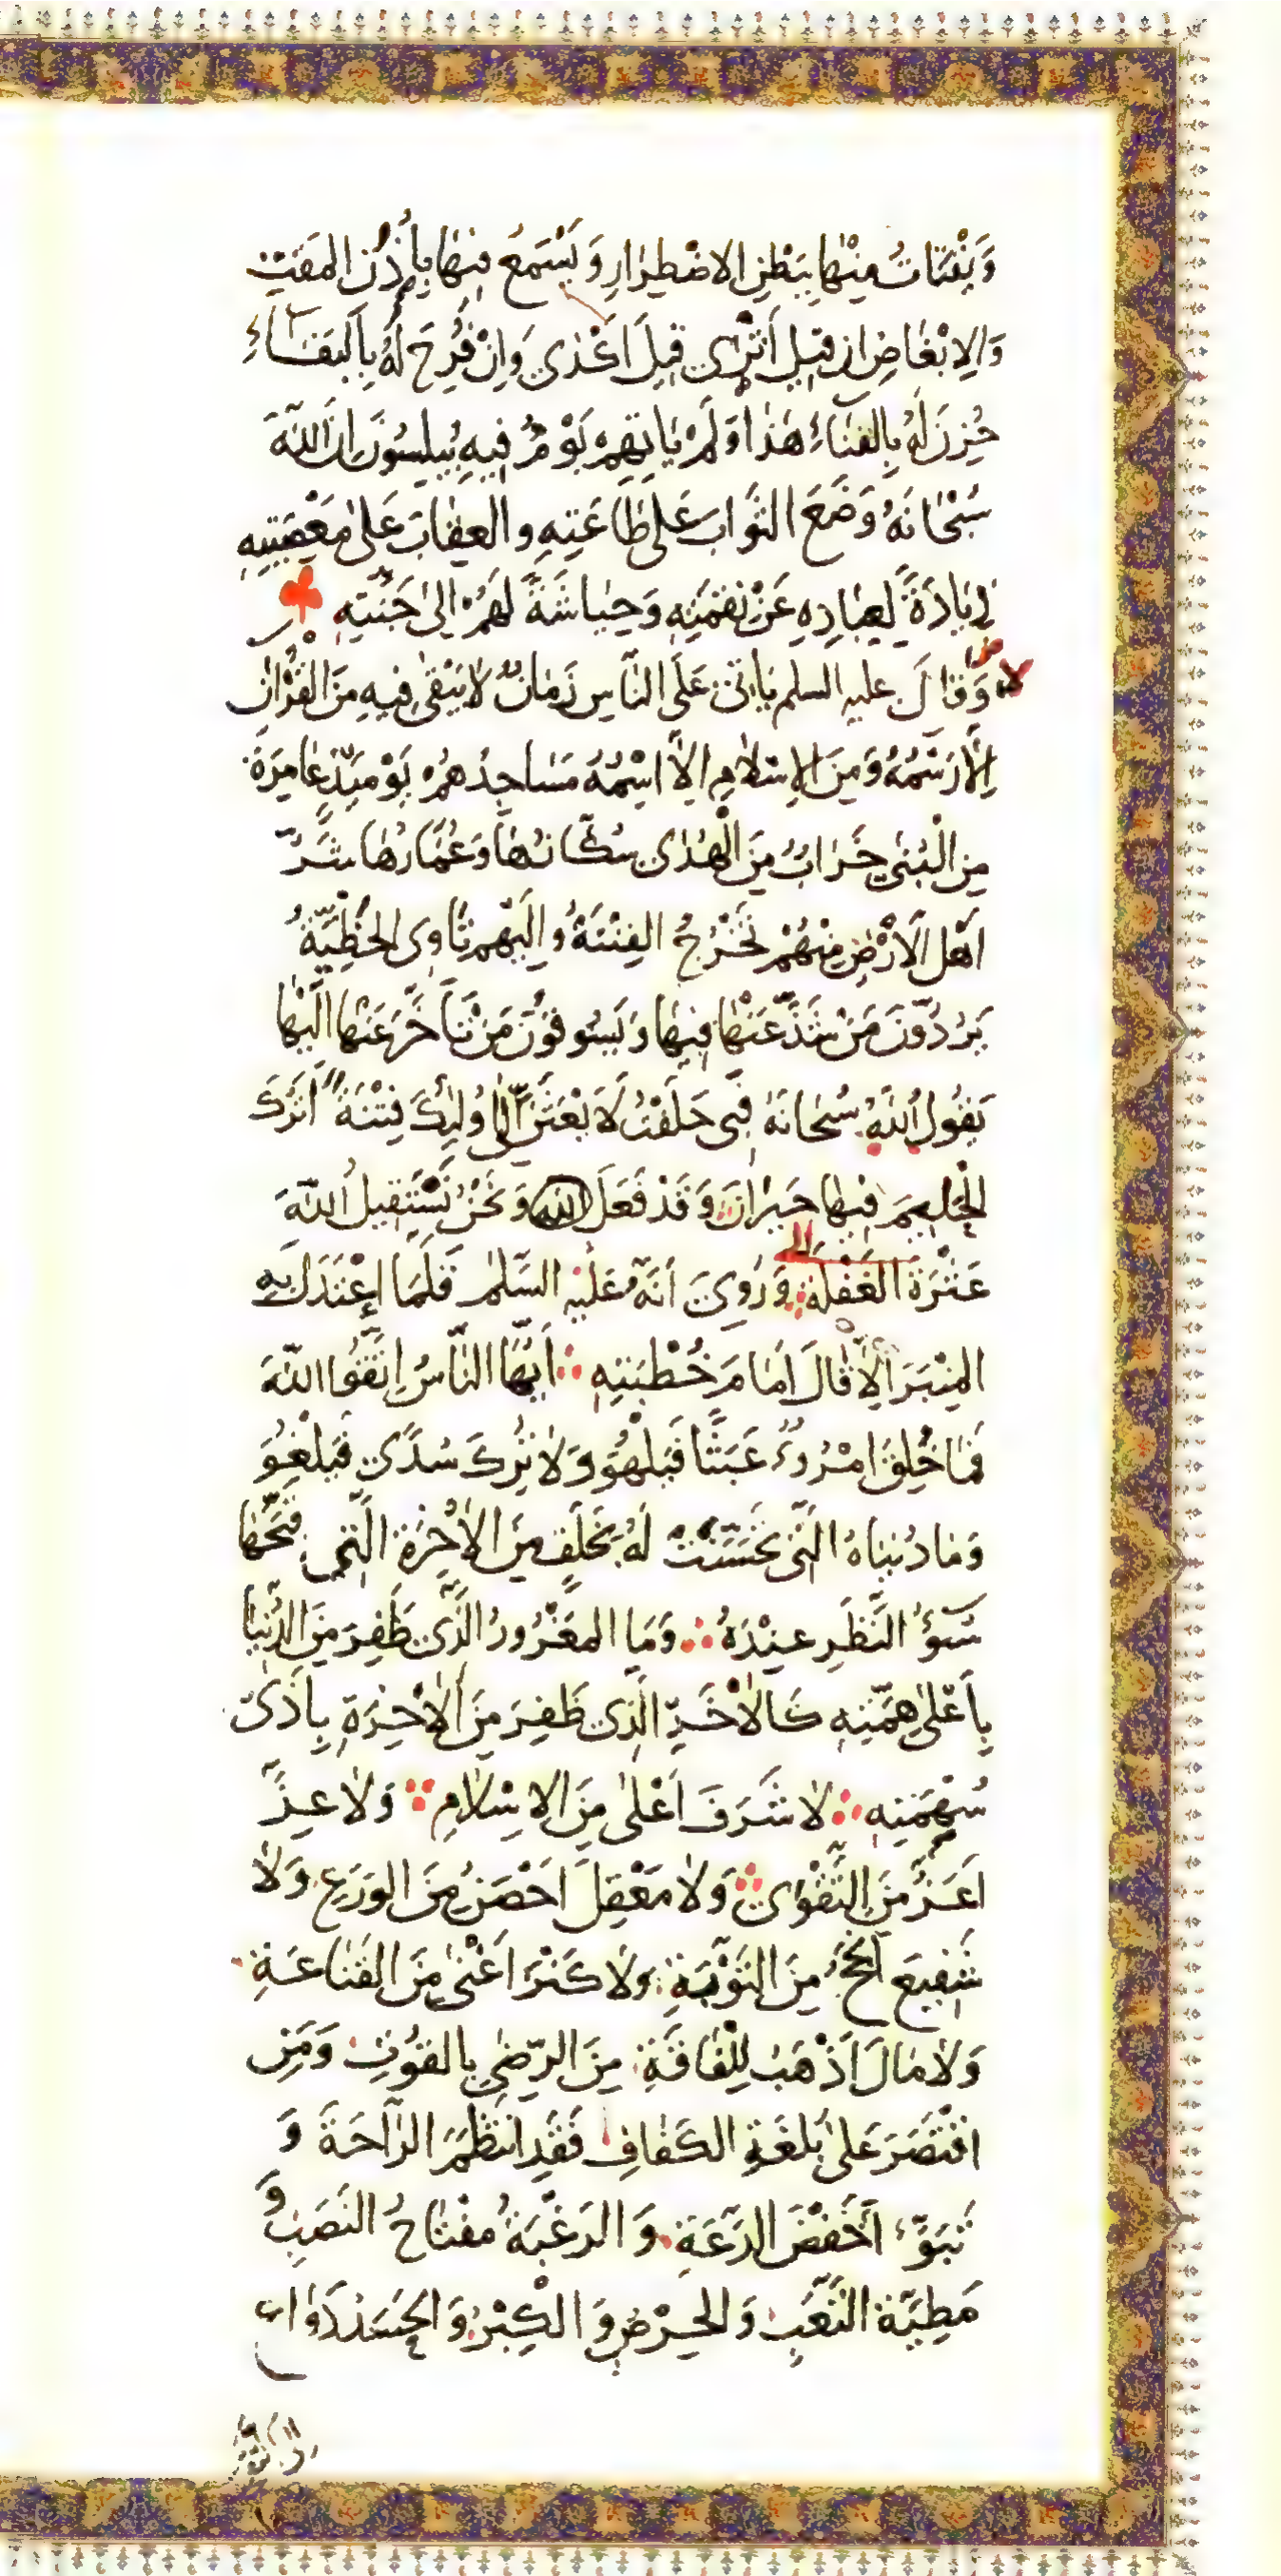 وَيَقْتَاتُ مِنْهَا بِبَطْنِ الاِضْطِرَارِ وَيَسْمَعُ فِيهَا بِأُذُنِ المَقْتِ
وَالاِبْغَاضِ اِنْ قِيلَ اَثْرَى قِيلَ اَكْدَى وَاِنْ فُرِحَ لَهُ بِالبَقَاءِ
حُزِنَ لَهُ بِالفَنَاءِ هٰذَا وَلَمْ يَاتِهِمْ يَوْمٌ فِيهِ يُبْلِسُونَ اِنَّ اللّٰهَ
سُبْحَانَهُ وَضَعَ الثَّوَابَ عَلَى طَاعَتِهِ وَالعِقَابَ عَلَى مَعْصِيَتِهِ
ذِيَادَةً لِعِبَادِهِ عَنْ نِقْمَتِهِ وَحِيَاشَةً لَهُمْ اِلَى جَنَّتِهِ
وَقَالَ عليه السلم يَاتِى عَلَى النَّاسِ زَمَانٌ لَا يَبْقَى فِيهِ مِنَ القُرْاٰنِ
اِلَّا رَسْمُهُ وَمِنَ الاِسْلَامِ اِلَّا اسْمُهُ مَسَاجِدُهُمْ يَوْمَئِذٍ عَامِرَةٌ
مِنَ الْبُنَى خَرَابٌ مِنَ الْهُدَى سُكَّانُهَا وَعُمَّارُهَا شَرُّ
اَهْلِ الْاَرْضِ مِنْهُمْ تَخْرُجُ الفِتْنَةُ وَاِلَيْهِمْ تَأوِى الخَطِيَّةُ
يَرُدُّونَ مَنْ شَذَّ عَنْهَا فِيهَا وَيَسُوقُونَ مَنْ تَاَخَّرَ عَنْهَا اِلَيْهَا
يَقُولُ اللّٰهُ سُبْحَانَهُ فَبِى حَلَفْتُ لَاَبْعَثَنَّ عَلَى اُولٰئِكَ فِتْنَةً اَتْرُكُ
الْحَلِيمَ فِيهَا حَيْرَانَ وَقَدْ فَعَلَ اللّٰه وَنَحْنُ نَسْتَقِيلُ اللّٰهَ
عَثْرَةَ الغَفْلَةِ وَرُوِىَ اَنَّهُ عَلَيْهِ السَّلَم قَلَّمَا اِعْتَدَلَ بِهِ
المِنْبَرُ اِلَّا قَالَ اَمَامَ خُطْبَتِهِ اَيُّهَا النَّاسُ اِتَّقُوا اللّٰهَ
فَمَا خُلِقَ امْرُؤٌ عَبَثًا فَيَلْهُوَ وَلَا تُرِكَ سُدًى فَيَلْغُوَ
وَمَا دُنْيَاهُ الَّتِى تَحَسَّنَتْ لَهُ بِخَلَفٍ مِنَ الاٰخِرَةِ الَّتِى قَبَّحَهَا
سُوْءُ النَّظَرِ عِنْدَهُ وَمَا المَغْرُورُ الَّذِى ظَفِرَ مِنَ الدُّنْيَا
بِاَعْلَى هِمَّتِهِ كَالاٰخَرِ الَّذِى ظَفِرَ مِنَ الاٰخِرَةِ بِاَدْنَى
سُهْمَتِهِ لَا شَرَفَ اَعْلَى مِنَ الاِسْلَامِ وَلَا عِزَّ
اَعَزُّ مِنَ التَّقْوَى وَلَا مَعْقِلَ اَحْصَنُ مِنَ الوَرَعِ وَلَا
شَفِيعَ اَنْجَحُ مِنَ التَّوْبَةِ وَلَا كَنْزَ اَغْنَى مِنَ القَنَاعَةِ
وَلَا مَالَ اَذْهَبُ لِلْفَاقَةِ مِنَ الرِّضَى بِالقُوتِ وَمَنِ
اقْتَصَرَ عَلَى بُلْغَةِ الكَفَافِ فَقَدِ انْتَظَمَ الرَّاحَةَ وَ
تَبَوَّءَ خَفْضَ الدَّعَةِ وَالرَغْبَةُ مِفْتَاحُ النَصَبِ وَ
مَطِيَّةُ التَّعَبِ وَالحِرْصُ وَالْكِبْرُ وَالحَسَدُ دَوَاعٍ